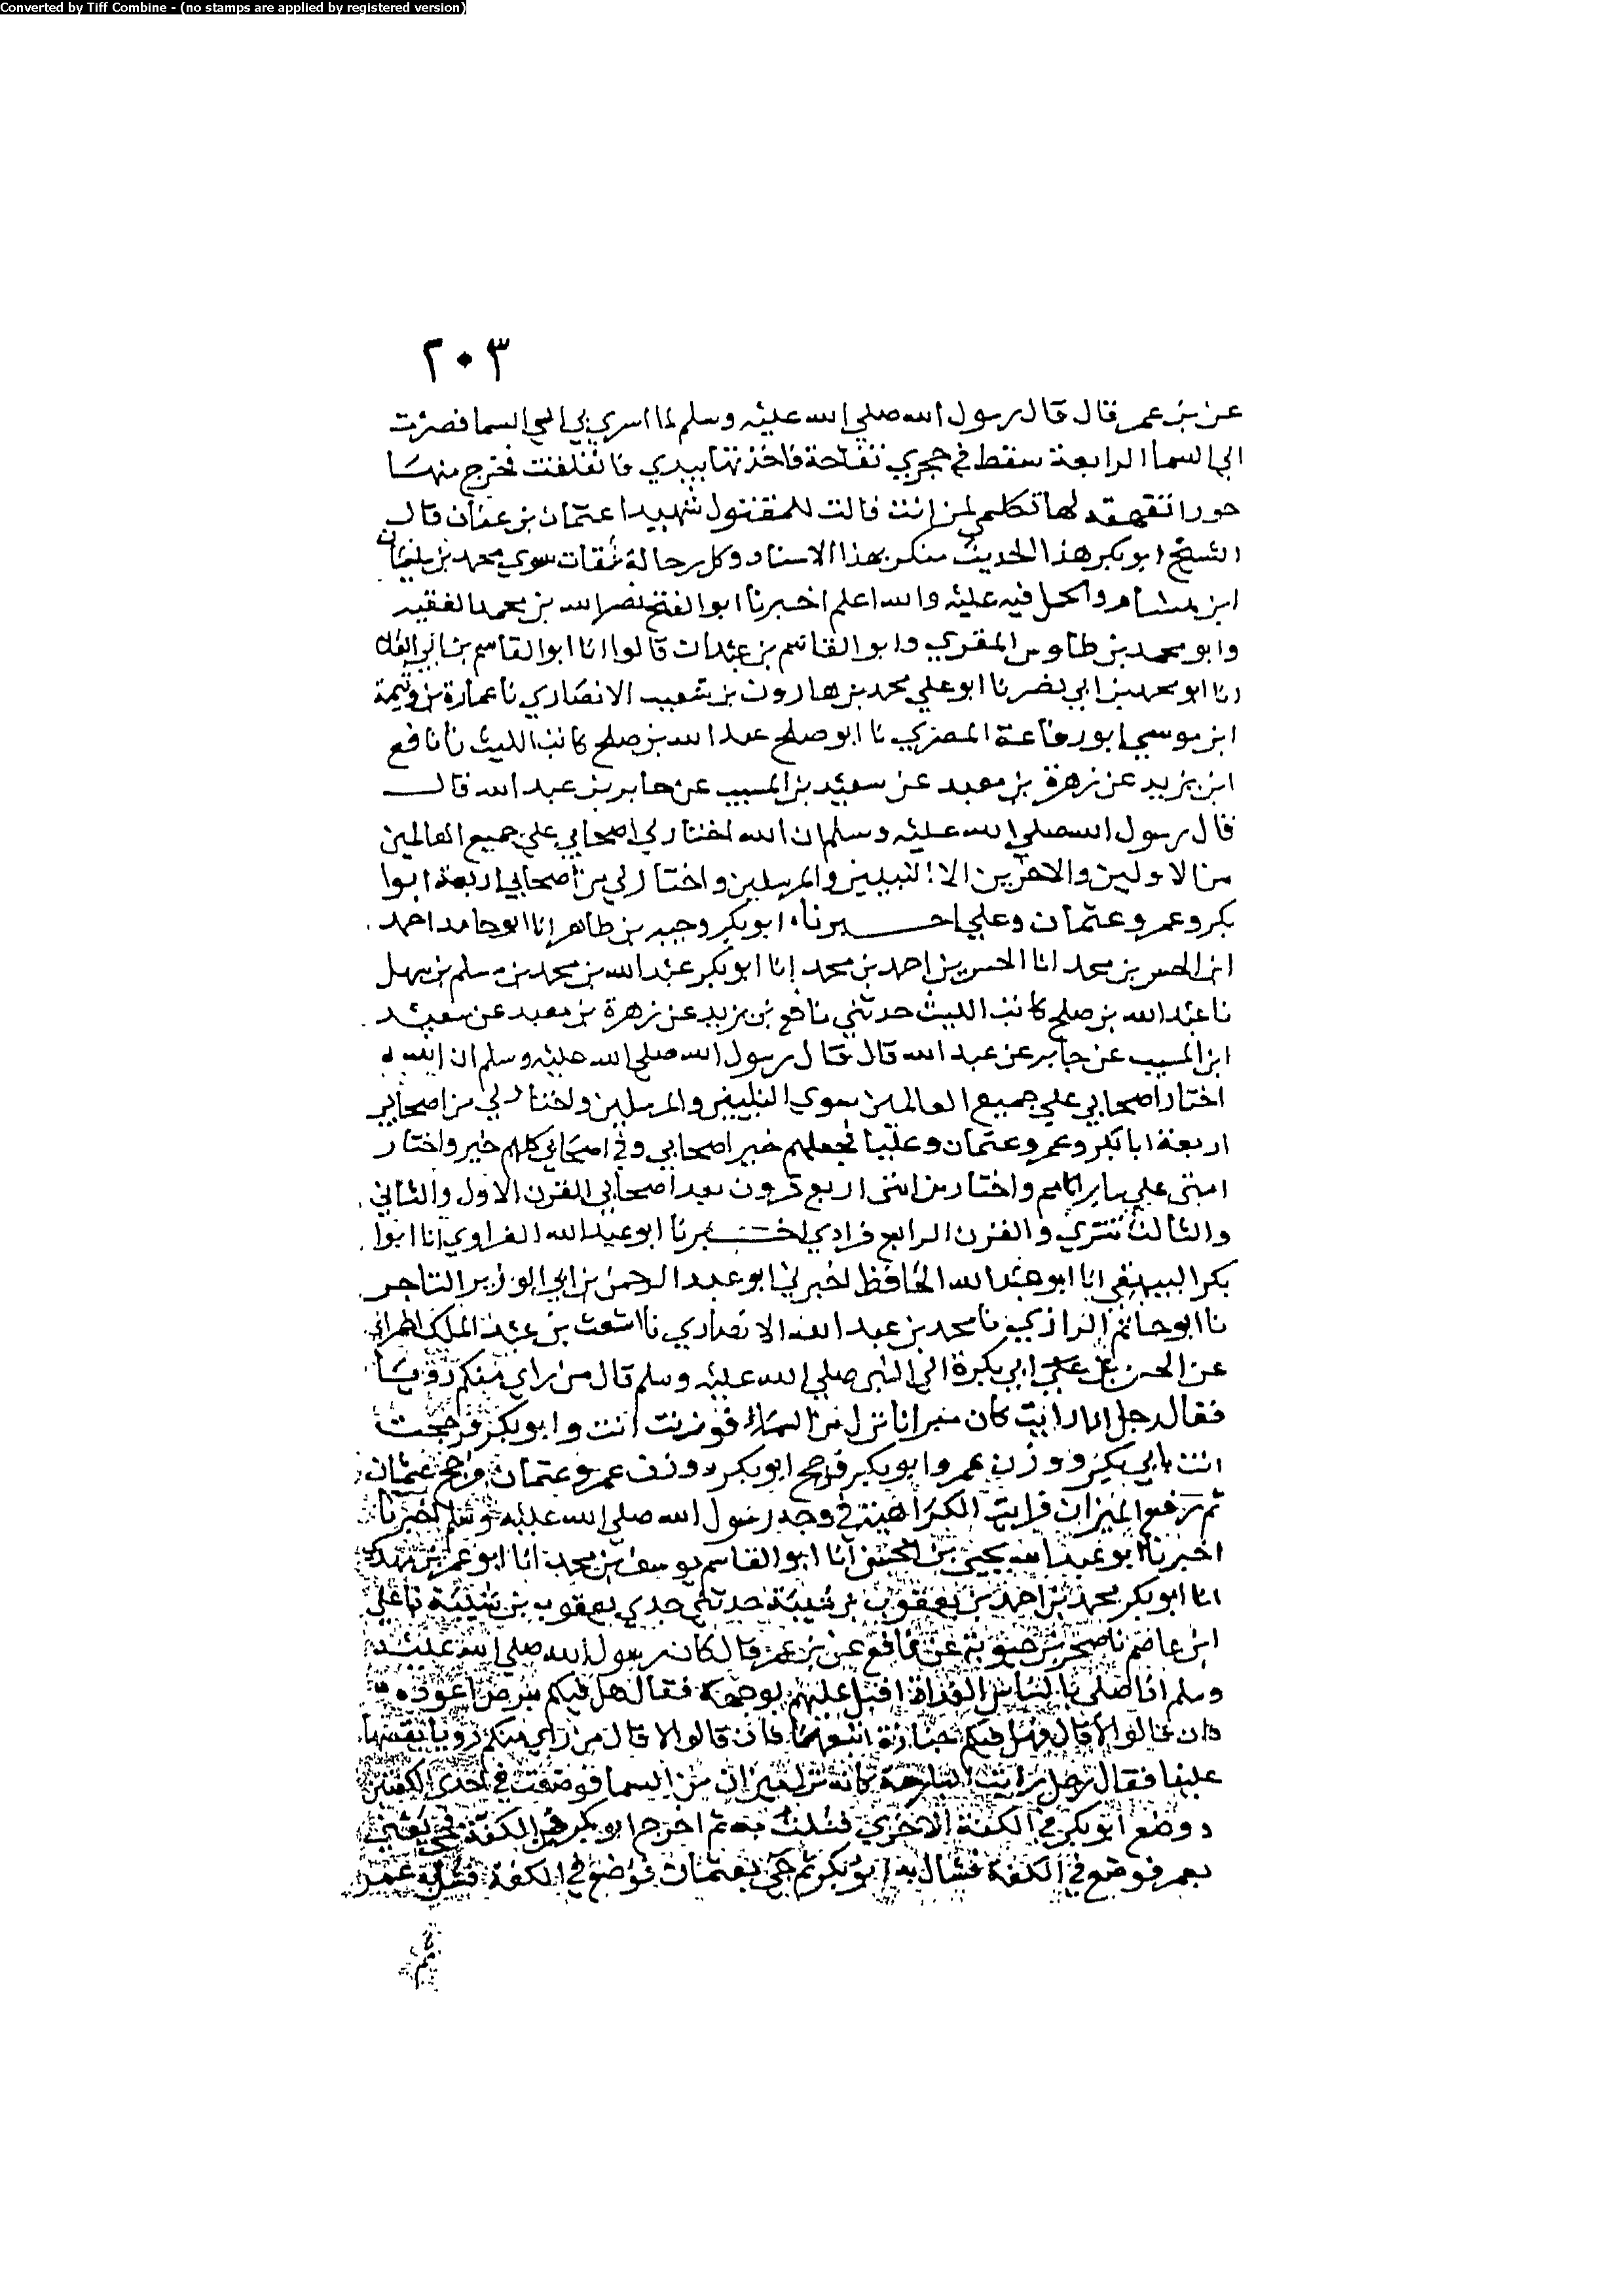 Converted by Tiff Combine - (no stamps are applied by registered version)
٢٠٣
عن بن عمر قال قال رسول الله صلي الله عليه وسلم لما اسري بي الي السما فصرت
الي السما الرابعة سقط في حجري تفاحة فاخذتها بيدي فانفلقت فخرج منها
حورا تقهقه لها تكلمي لمن انت قالت للمقتول شهيدا عثمان بن عفان قال
الشيخ ابو بكر هذا الحديث منكر بهذا الاسناد وكل رجاله ثقات سوي محمد بن سليمان
ابن هشام والحمل فيه عليه والله اعلم اخبرنا ابو الفتح نصر الله بن محمد الفقيه
وابو محمد بن طاوس المقري وابو القاسم بن عبدان قالوا انا ابو القاسم بن ابي العلا
انا ابو محمد بن ابي نصر نا ابو علي محمد بن هارون بن شعيب الانصاري نا عمارة بن وثيمة
ابن موسي ابو رفاعة المصري نا ابو صلح عبد الله بن صلح كاتب الليث نا نافع
ابن يزيد عن زهرة بن معبد عن سعيد بن المسيب عن جابر بن عبد الله قال
قال رسول الله صلي الله عليه وسلم ان الله اختار لي اصحابي علي جميع العالمين
من الاولين والاخرين الا النبيين والمرسلين واختار لي من اصحابي اربعة ابوا
بكر وعمر وعثمان وعلي اخبرناه ابو بكر وجيه بن طاهر انا ابو حامد احمد
ابن الحسن بن محمد انا الحسن بن احمد بن محمد انا ابو بكر عبد الله بن محمد بن مسلم بن سهل
نا عبد الله بن صلح كاتب الليث حدثني نافع بن يزيد عن زهرة بن معبد عن سعيد
ابن المسيب عن جابر عن عبد الله قال قال رسول الله صلي الله عليه وسلم ان الله
اختار اصحابي علي جميع العالمين سوي النبيين والمرسلين واختار لي من اصحابي
اربعة ابا بكر وعمر وعثمان وعليا فجعلهم خير اصحابي وفي اصحابي كلهم خير واختار
امتي علي ساير الامم واختار من امتي اربع قرون بعد اصحابي القرن الاول والثاني
والثالث تتري والقرن الرابع فرادي اخبرنا ابو عبد الله الفراوي انا ابوا
بكر البيهقي انا ابو عبد الله الحافظ اخبرني ابو عبد الرحمن بن ابي الوزير التاجر
نا ابو حاتم الرازي نا محمد بن عبد الله الانصاري نا اشعث بن عبد الملك الحمراني
عن الحسن عن ابي بكرة ان النبي صلي الله عليه وسلم قال من راي منكم رؤيا
فقال رجل انا رايت كان ميزانا نزل من السماء فوزنت انت وابو بكر فرجحت
انت بابي بكر ووزن عمر وابو بكر فرجح ابو بكر ووزن عمر وعثمان فرجح عثمان
ثم رفع الميزان فرايت الكراهية في وجه رسول الله صلي الله عليه وسلم اخبرنا
اخبرنا ابو عبد الله يحيي بن الحسن انا ابو القاسم يوسف بن محمد انا ابو عمر بن مهدي
انا ابو بكر محمد بن احمد بن يعقوب بن شيبة حدثني جدي يعقوب بن شيبة نا علي
ابن عاصم نا صخر بن جويرية عن نافع عن بن عمر قال كان رسول الله صلي الله عليه
وسلم اذا صلي بالناس الغداة اقبل عليهم بوجهه فقال هل فيكم مريض اعوده
فان قالوا لا قال فهل فيكم جنازة اتبعها فان قالوا لا قال من راي منكم رؤيا يقصها
علينا فقال رجل رايت البارحة كانه نزل ميزان من السما فوضعت في احدي الكفتين
ووضع ابو بكر في الكفة الاخري فشلت به ثم اخرج ابو بكر من الكفة فجي
بعمر فوضع في الكفة فشال به ابو بكر ثم جي بعثمان فوضع في الكفة فشال به عمر
ثم